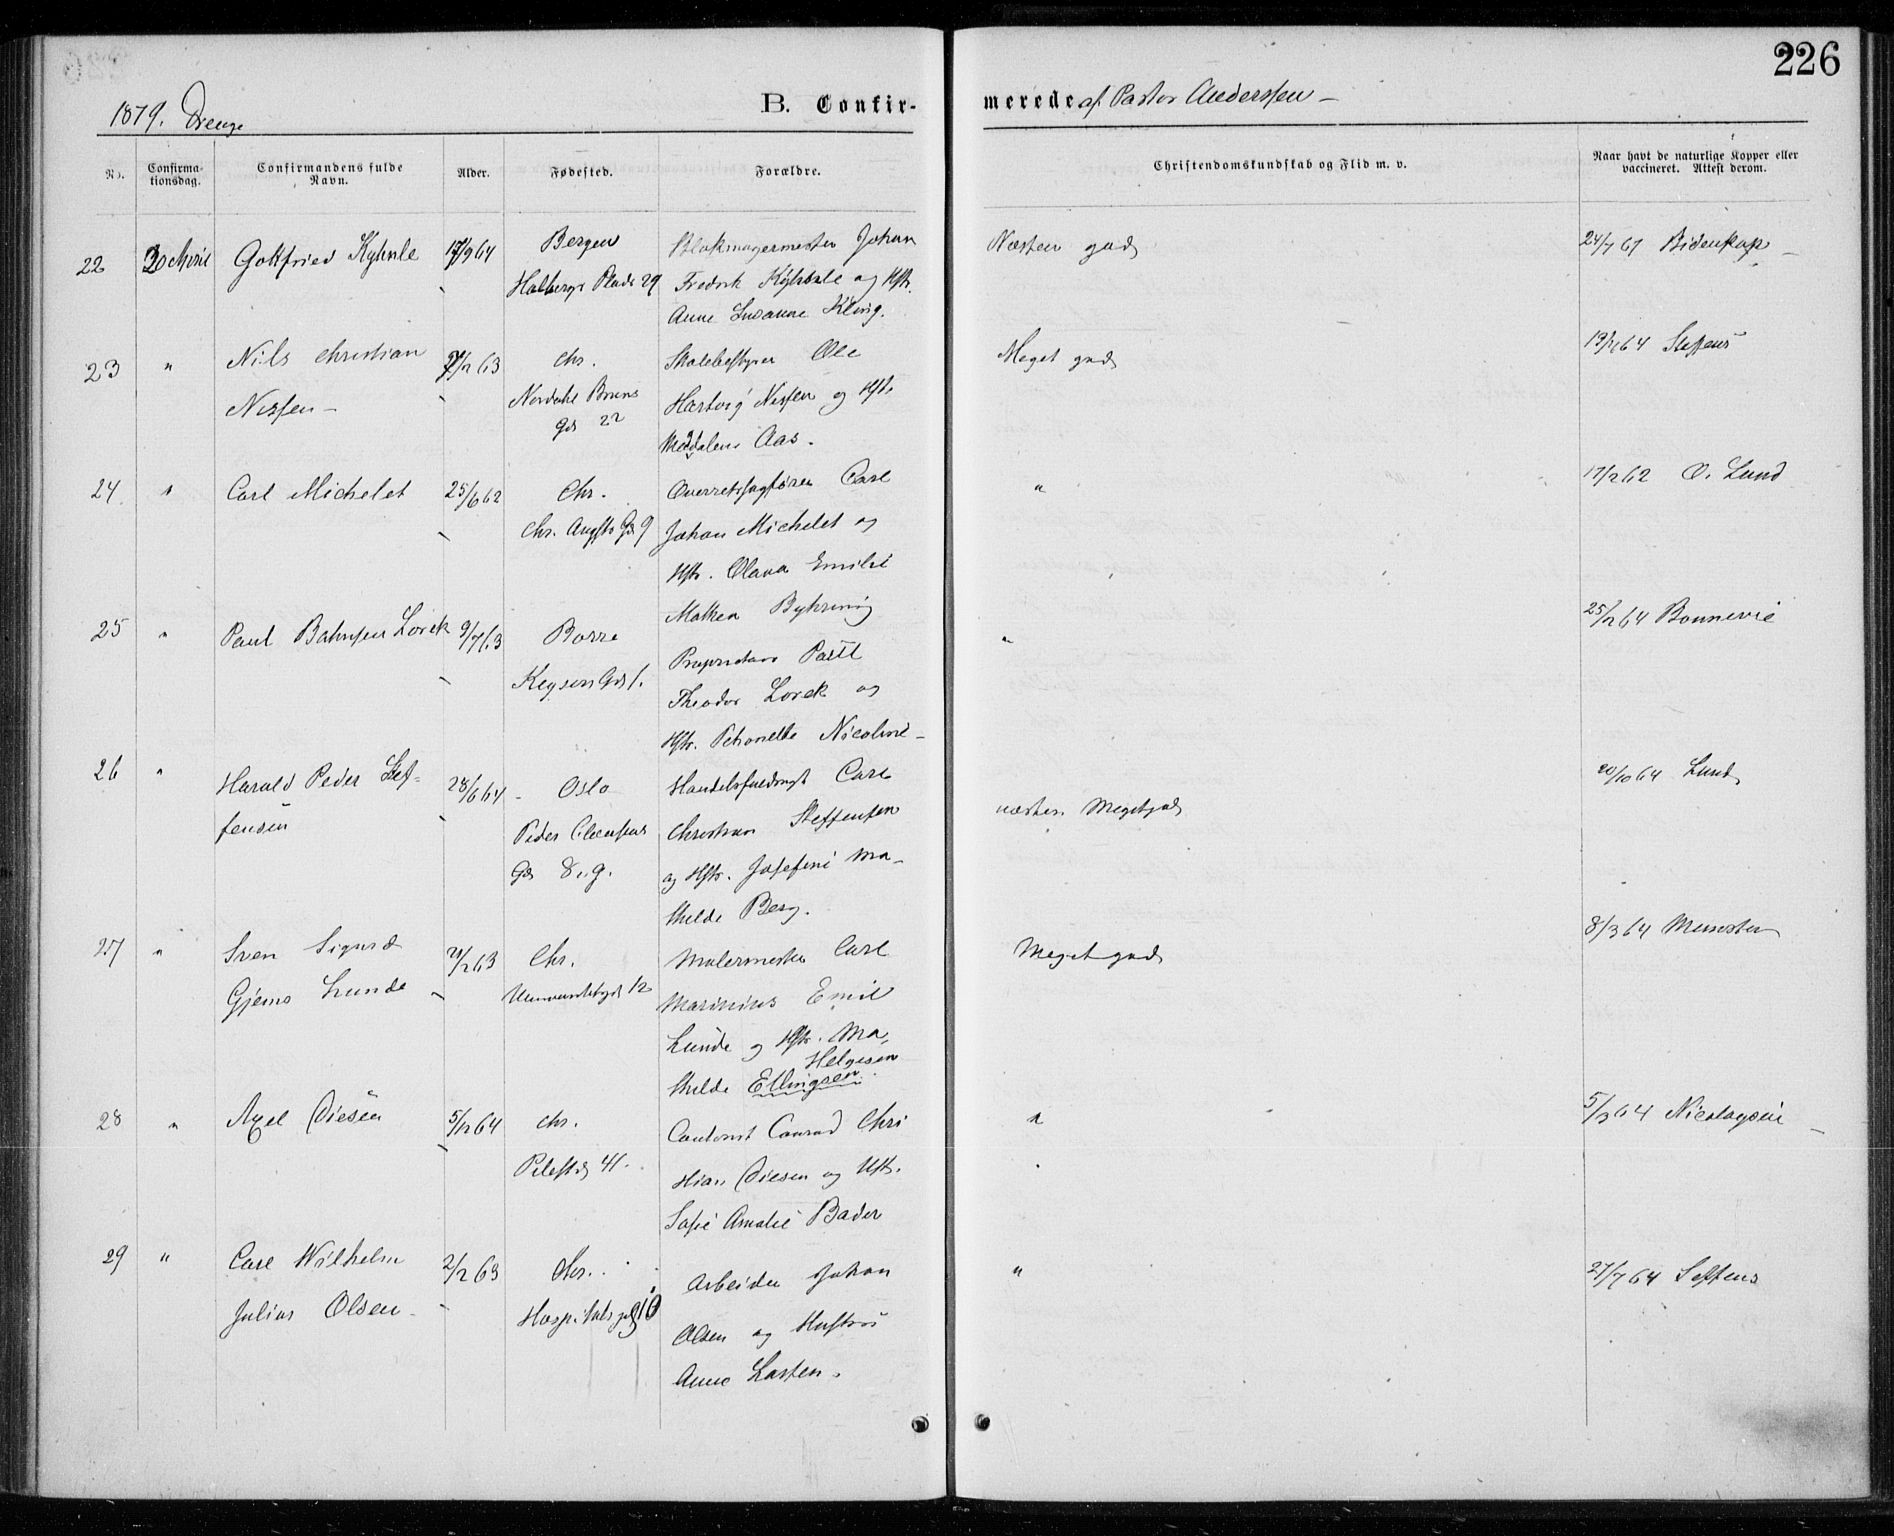 226
1879. Drenge
B. Confir-
merede af Pastor Anderssen –
No.
Confirma-
tionsdag.
Confirmandens fulde
Navn.
Alder.
Fødested.
Forældre.
Christendomskundskab og Flid m. v.
Naar havt de naturlige Kopper eller
vaccineret. Attest derom.
22 April Gottfried Kyhnle 17/9 64 Bergen Blokmagermester Johan Næsten god 24/7 67 Bidenkap –
Holbergs Plads 29 Fredrik og Hstr.
Anne Susanne Kling.
23 " Nils Christian 63 Chr. Skolebestyrer Ole Meget god 64 Steffens
Nissen – Nordahl Bruns Hartvig Nissen og Hstr.
Gd 22 Aas.
24 " Carl Michelet 25/6 62 Chr. Overretssagfører Carl " 17/12 62 O. Lund
Chr. Augsts Gd 9 Johan Michelet og
Hstr. Olava Emilie
25 " Paul Bahnsen Lorck 9/7 63 Borre " 25/12 64 Bonnevie
Keysers Gd 1. Proprietær Paul
Theodor Lorck og
Hstr. Petronelle Nicoline –
26 " Harald Peder Stef- 28/6 64 – Oslo Handelsfuldmgt Carl næsten Megetgod 20/10 64 Lund
fensen Peder Clausens Christian Steffensen
Gd 8. 9. og Hstr. Josefine Ma-
thilde Berg.
27 " Sven Sigurd 63 Chr. Malermester Carl Megetgod 8/3 64 Munster
Gjems Lunde Universitetsgd 12 Marinius Emil
Lunde og Hstr. Ma-
Helgesen
thilde Ellingsen.
28 " Axel Diesen 5/12 64 Chr. Contorist Conrad Chri " 5/3 64 Nicolaysen –
Pilestd 41. stian Diesen og Hstr.
Sofie Amalie Bader
29 " Carl Wilhelm 2/12 63 Chr. Arbeider Johan " 27/7 64 Steffens
Julius Olsen – Hospitalsgd 10 Olsen og Hustru
Anne Larsen.